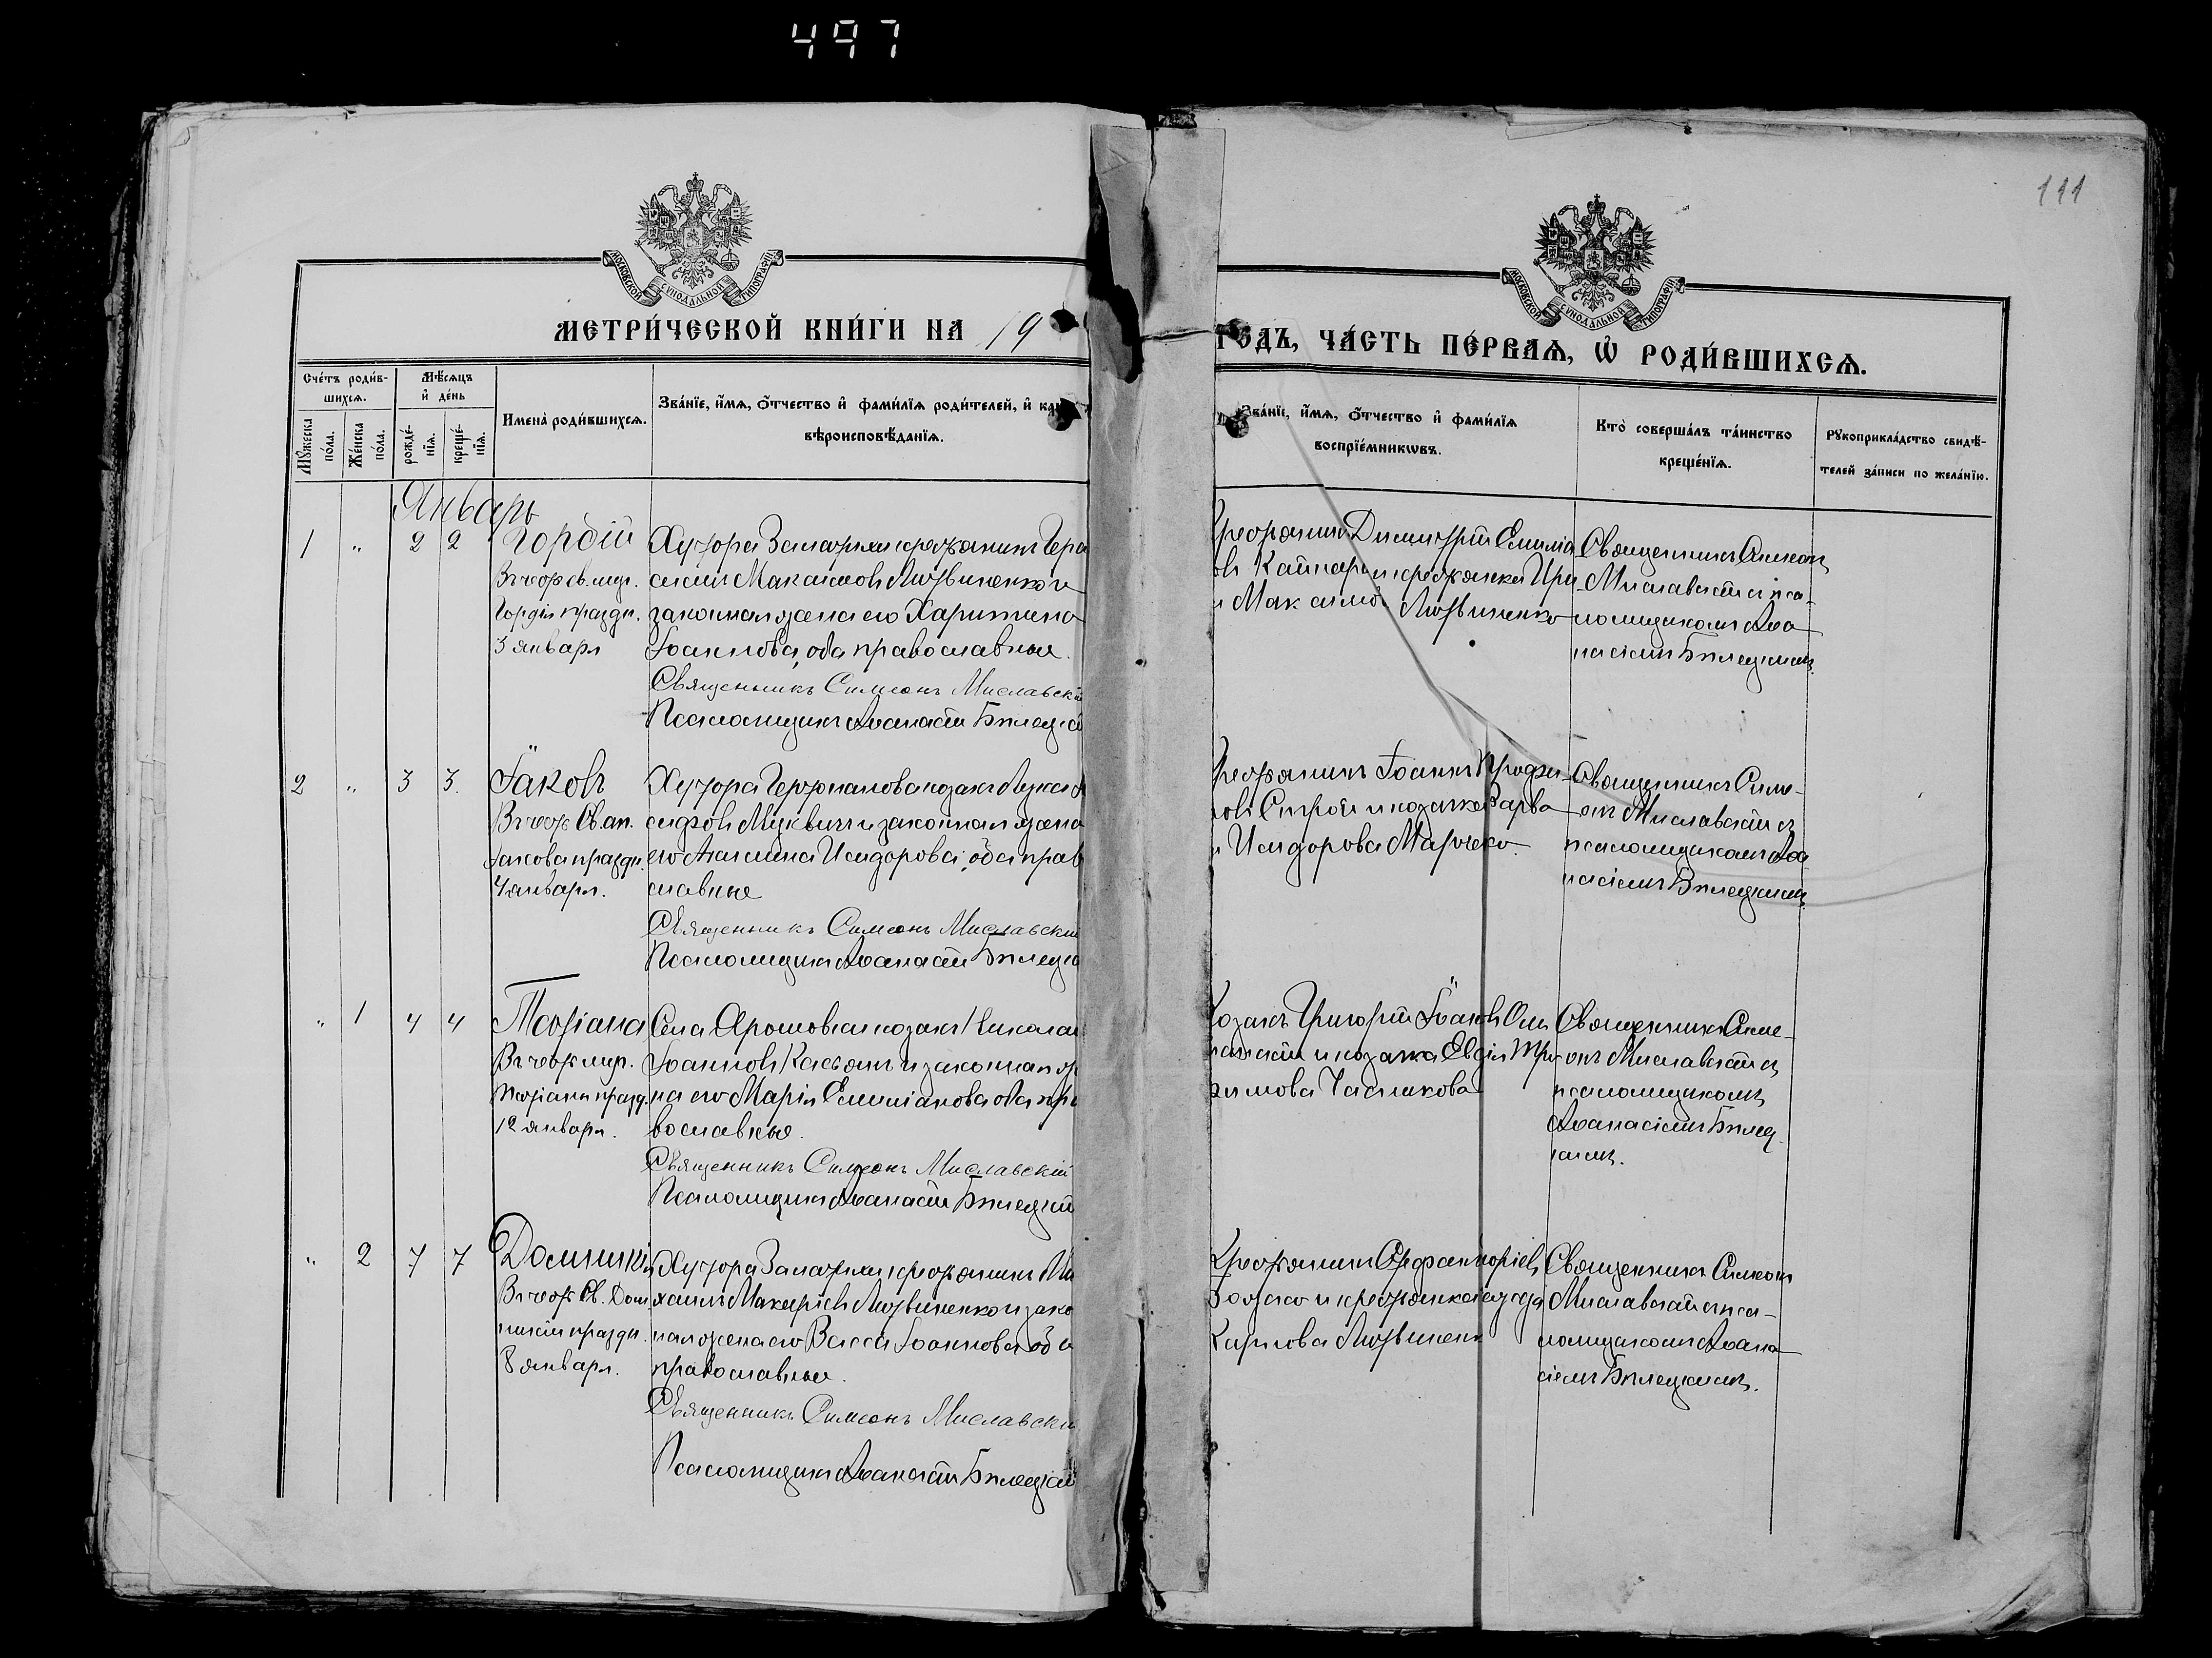 497
111
МОСКОВСКОЙ СѴНОДАЛЬНОЙ ТИПОГРАФІИ
МОСКОВСКОЙ СѴНОДАЛЬНОЙ ТИПОГРАФІИ
МЕТРИ́ЧЕСКОЙ КНИ́ГИ НА 19
ГОДЪ, ЧА́СТЬ ПЕ́РВАѦ, Ѡ҆ РОДИ́ВШИХСѦ.
Сче́тъ роди́в-
шихсѧ.
Мꙋ́жеска
по́ла.
Же́нска
по́ла.
Мѣ́сѧцъ
и҆ де́нь
рожде́-
нїѧ.
креще́-
нїѧ.
Имена̀ роди́вшихсѧ.
Зва́нїе, и҆́мѧ, ѻ҆́тчество и҆ фами́лїѧ роди́телей, и҆
вѣроисповѣ́данїѧ.
Зва́нїе, и҆́мѧ, ѻ҆́тчество и҆ фами́лїѧ
воспрїе́мникѡвъ.
Кто̀ соверша́лъ та́инство
креще́нїѧ.
Рꙋкоприкла́дство свидѣ́-
телей за́писи по жела́нїю.
Январь
1 " 2 2 Гордій
Въ честь св. муч.
Гордія праздн.
3 января
Хутора крестьянинъ Гера
симъ Максимовъ Литвиненко и
законная жена его Харитина
Іоаннова, оба православные.
Священникъ Симеонъ Миславскі
Псаломщикъ Аѳанасій Бѣлецкі
крестьянинъ Димитрій Емиліа
овъ и крестьянка Ири
Максимова Литвиненко
Священникъ Симеонъ
Миславскій съ пса-
ломщикомъ Аѳа
насіемъ Бѣлецкимъ.
2 " 3 3. Іаковъ
Въ честь Св. ап.
Іакова праздн.
4 января.
Хутора козакъ Лука
и законная жена
его Исидорова, оба прав
славные
Священникъ Симеонъ Миславскі
Псаломщикъ Аѳанасій Бѣлецкі
крестьянинъ Іоаннъ
и козачка Варва
Исидорова
Священникъ Симе-
онъ Миславскій съ
псаломщикомъ Аѳа
насіемъ Бѣлецкимъ.
" 1 4 4 Татіана
Въ честь муч.
Татіаны празд.
12 января.
Села Ярошовки козакъ Николай
Іоанновъ Касьянъ и законная же
на его Марія Емиліанова оба пра
вославные.
Священникъ Симеонъ Миславскій
Псаломщикъ Аѳанасій Бѣлецкій
козакъ Григорій
и козачка Евдокія
Священникъ Симе-
онъ Миславскій съ
псаломщикомъ
Аѳанасіемъ Бѣлец-
кимъ.
" 2 7 7 Домникія
Въ честь Св. Дом
никіи праздн.
8 января.
Хутора крестьянинъ Ми
хаилъ Макаріевъ Литвиненко и зако
ная жена его Васса Іоаннова оба
православные.
Священникъ Симеонъ Миславскі
Псаломщикъ Аѳанасій Бѣлецкій
крестьянинъ
и крестьянка
Карпова Литвиненк
Священникъ Симеонъ
Миславскій съ пса-
ломщикомъ Аѳана
сіемъ Бѣлецкимъ.